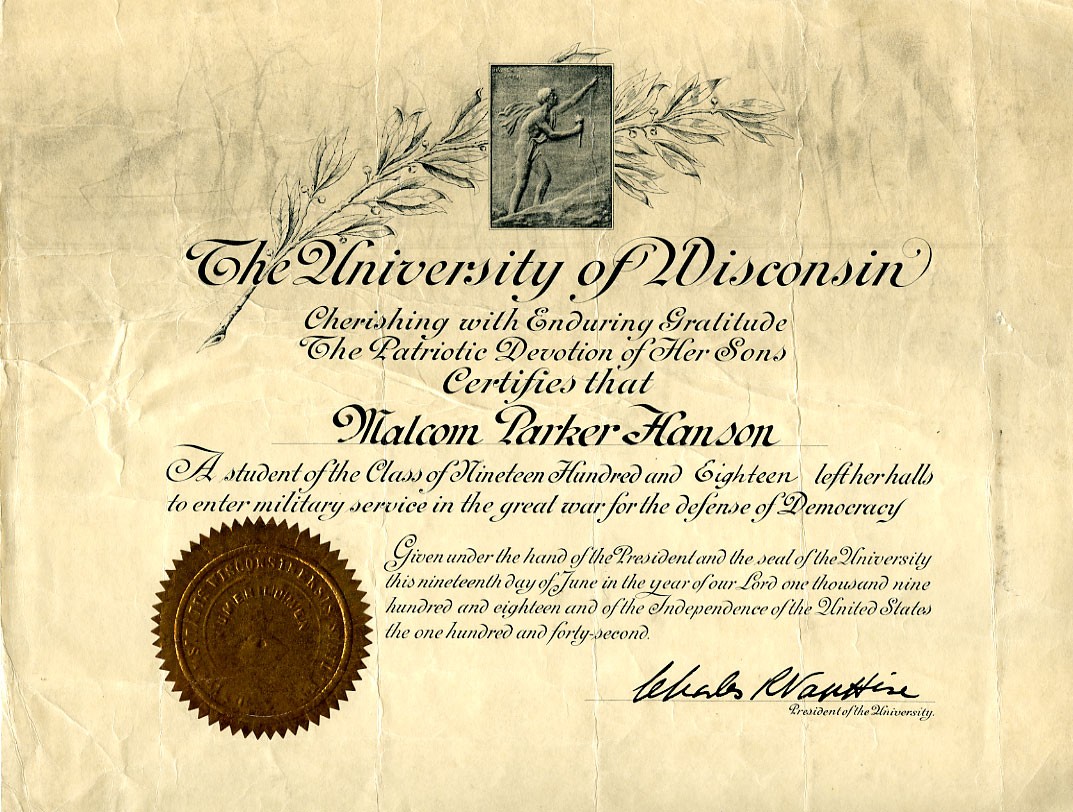 The University of Wisconsin
Cherishing with Enduring Gratitude
The Patriotic Devotion of Her Sons
Certifies that
Malcom Parker Hanson
A student of the Class of Nineteen Hundred and Eighteen left her halls
to enter military service in the great war for the defense of Democracy
Given under the hand of the President and the seal of the University
this nineteenth day of June in the year of our Lord one thousand nine
hundred and eighteen and of the Independence of the United States
the one hundred and forty-second.
Charles R Van Hise
President of the University.